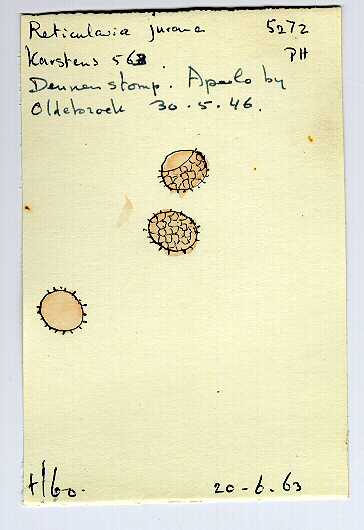 Reticularia jurana 5272
Karstens 563 PH
Dennenstomp. Apeldo by
Oldebroek 30.5.46.
20-6.63